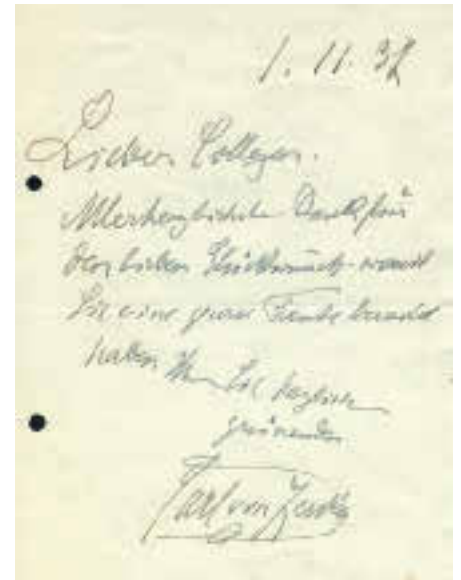 1. 11. 32
Lieber College.
Allerherzlichsten Dank für
den lieben Glückwunsch womit
Sie eine grosse Freude bereitet
haben Sie herzlich
grüssender
Carl von